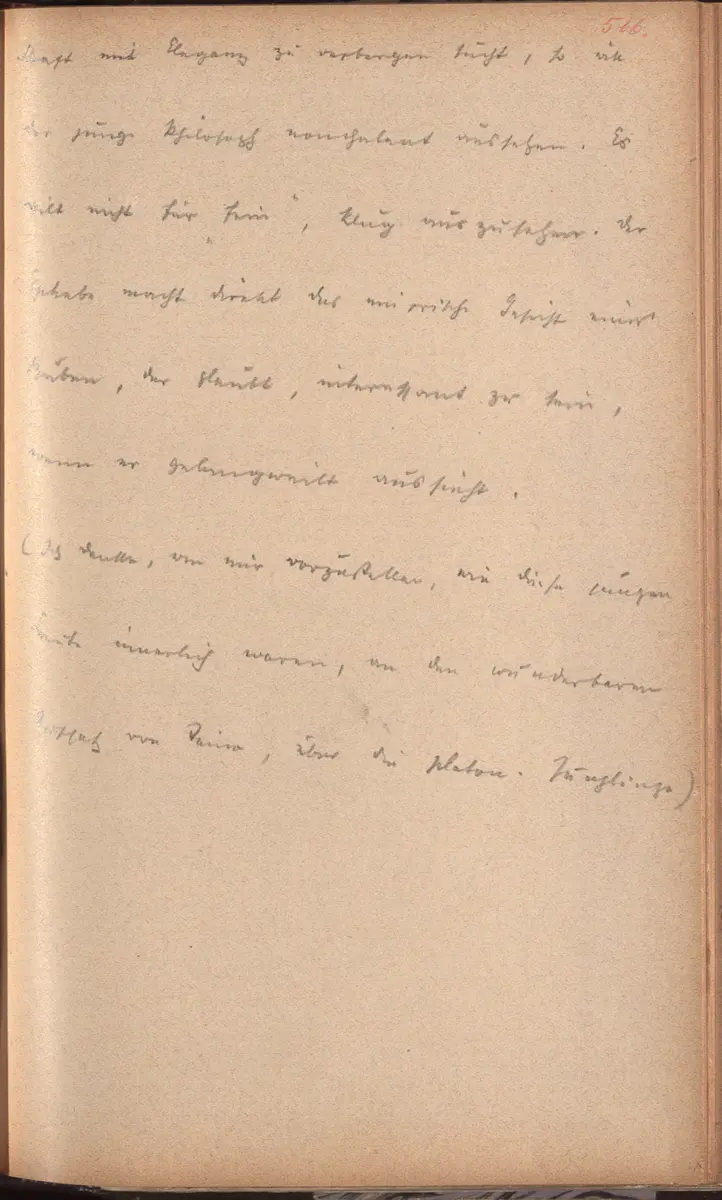 566.
mit Eleganz zu verbergen sucht, so
der junge Philosoph nonchalant aussehen. Es
gilt nicht für „fein“, klug auszusehen. Der
Knabe macht direkt das mürrische Gesicht eines
Buben, der glaubt, interessant zu sein,
wenn er gelangweilt aussieht.
(Ich denke, um mir vorzustellen, wie diese jungen
Leute innerlich waren, an den wunderbaren
Aufsatz von Taine, über die platon. Jünglinge)